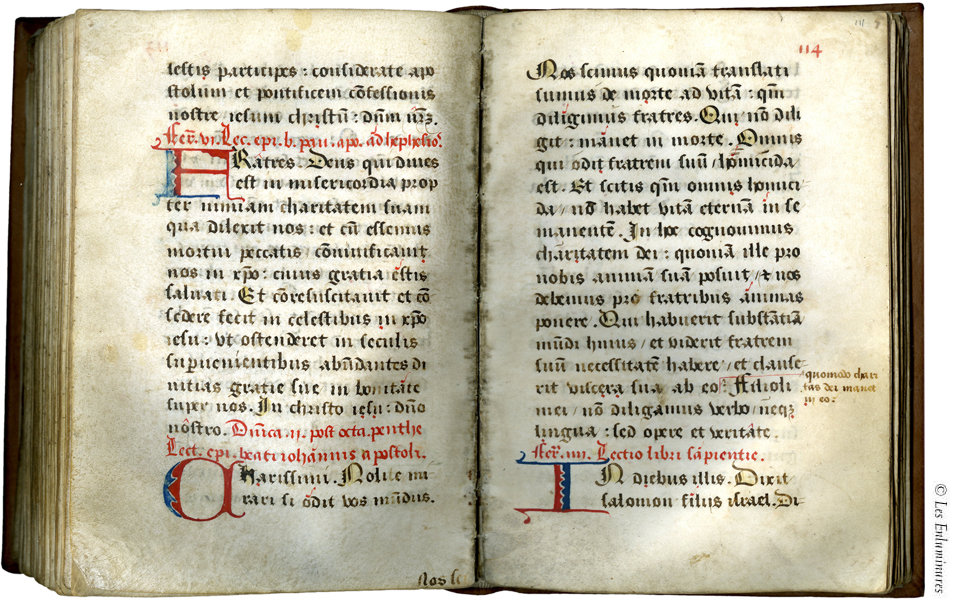 lestis participes : considerate apo
stolum et pontificem cōfessionis
nostre / iesum christū : dn̄m nr̄ꝫ.
Fer̄. vi. Lec. epi. b. pau. apo. ad hephesios.
FRatres. Deus qui diues
est in misericordia prop
ter nimiam charitatem suam
qua dilexit nos : et cū essemus
mortui peccatis / cōuiuificauit
nos in xp̄o : cuius gratia estis
saluati. Et cōresuscitauit et cō
sedere fecit in celestibus in xp̄o
iesu : vt ostenderet in seculis
superuenientibus abūdantes di
uitias gratie sue / in bonitate
super nos. In christo iesu : dn̄o
nostro. Dn̄ica. ii. post octa. penthe
Lect. epi. beati iohānnis apostoli.
CHarissimi. Nolite mi
rari si odit vos mūdus.
Nos sc
114
Nos scimus quoniā translati
sumus de morte ad vitā : qm̄
diligimus fratres. Qui nō dili
git : manet in morte. Omnis
qui odit fratrem suū / homicida
est. Et scitis qm̄ omnis homici
da / nō habet vitā eternā in se
manentē. In hoc cognouimus
charitatem dei : quoniā ille pro
nobis animā suā posuit / et nos
debemus pro fratribus animas
ponere. Qui habuerit substātiā
mūdi huius / et viderit fratrem
suū necessitatē habere / et clause
rit viscera sua ab eo : Filioli
quomodo chari
tas dei manet
in eo :
mei / nō diligamus verbo / neqꝫ
lingua : sed opere et veritate.
Fer̄. iiii. Lectio libri sapientie.
IN diebus illis. Dixit
salomon filiis israel. Di
© Les Enluminures